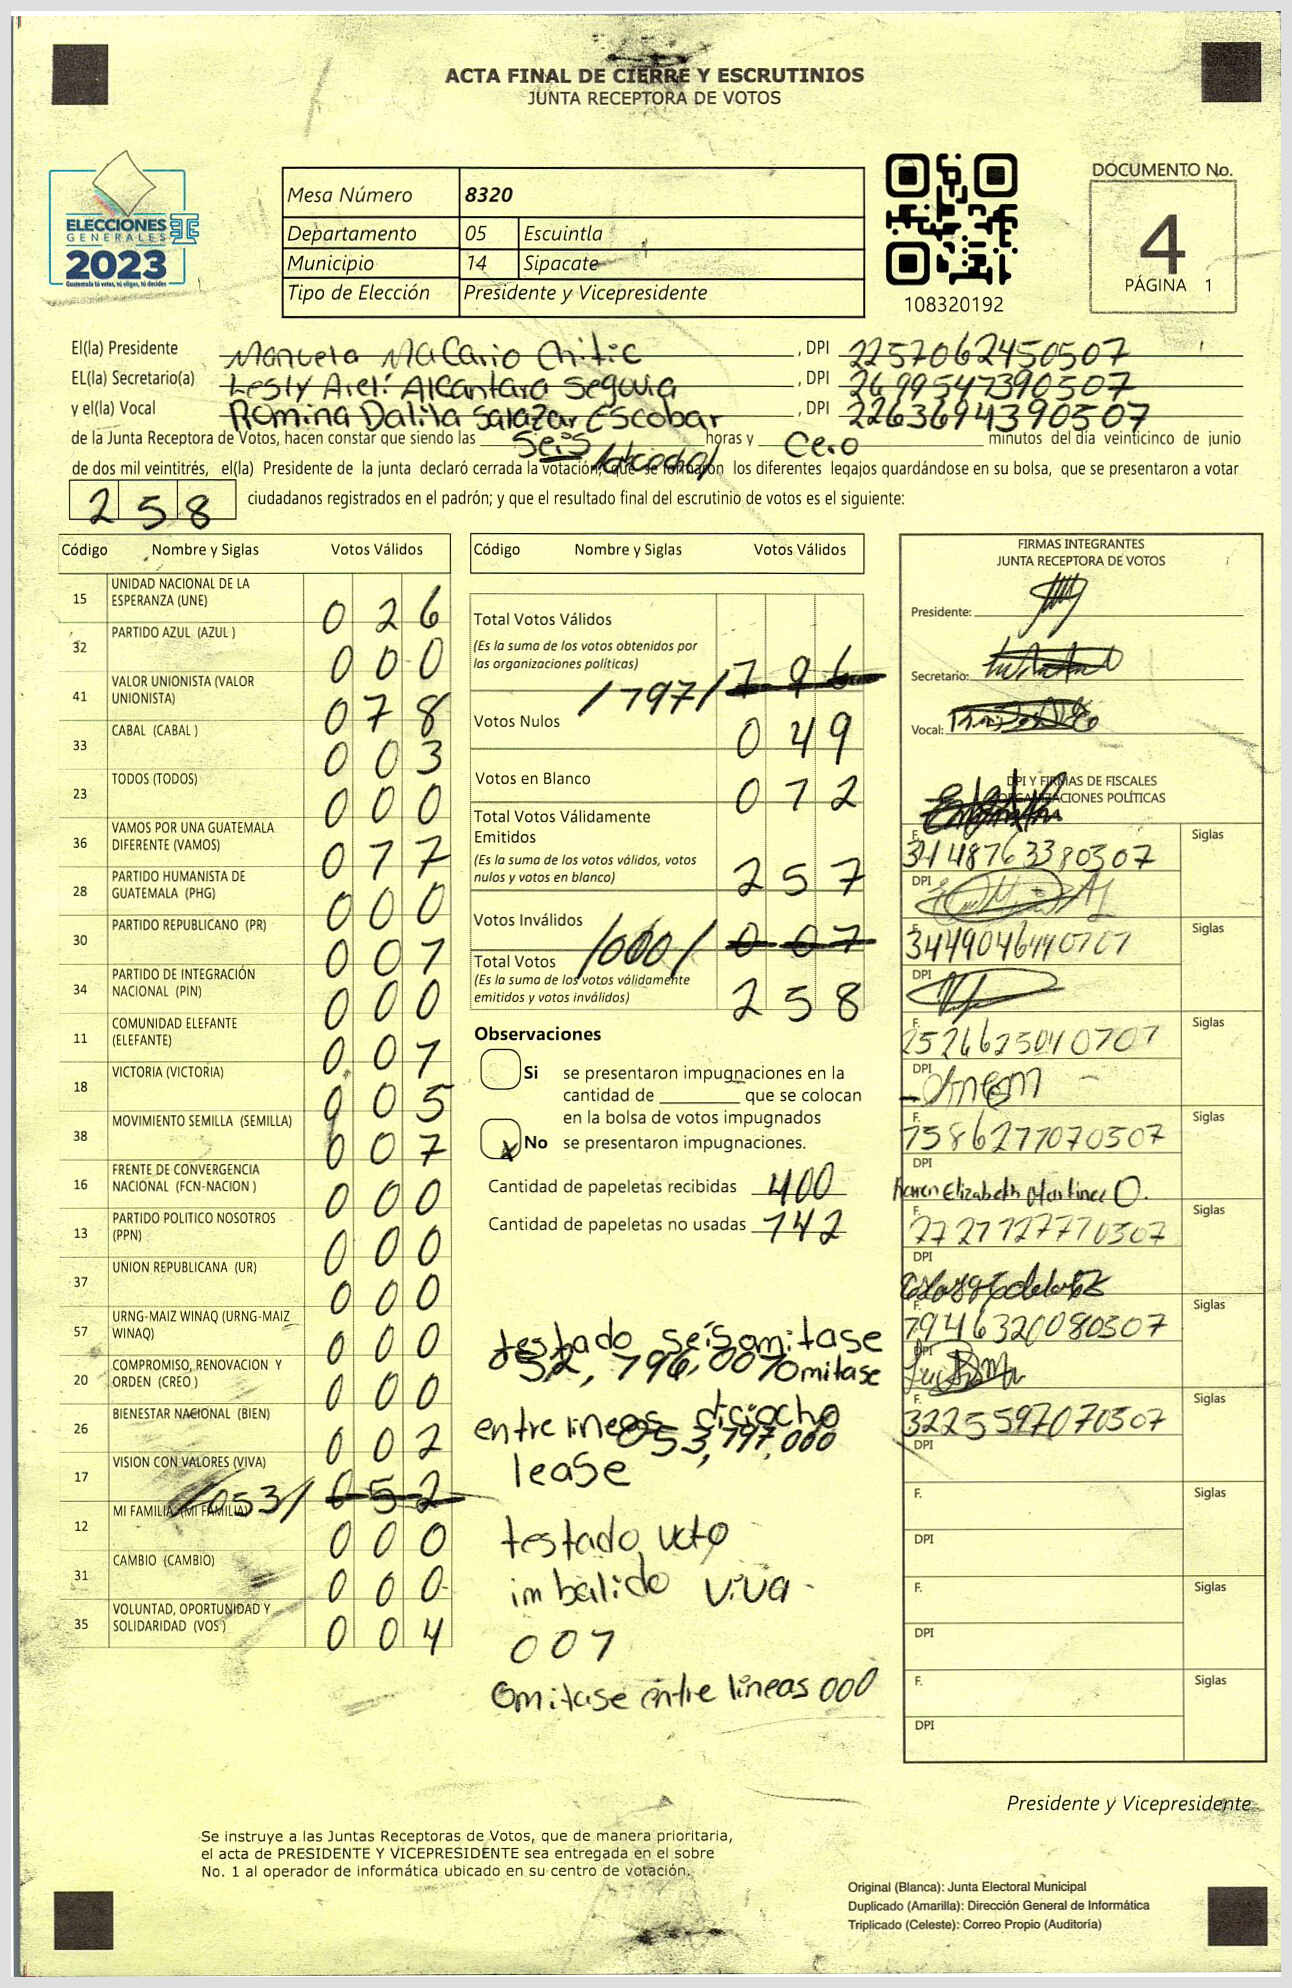 ACTA FINAL DE CIERRE Y ESCRUTINIOS
JUNTA RECEPTORA DE VOTOS
ELECCIONES
GENERALES
2023
Guatemala tú votas, tú eliges, tú decides
Mesa Número 8320
Departamento 05 Escuintla
Municipio 14 Sipacate
Tipo de Elección Presidente y Vicepresidente
108320192
DOCUMENTO No.
4
PÁGINA 1
El(la) Presidente Manuela Macario Chitic , DPI 2257062450507
EL(la) Secretario(a) Lesly Arelí Alcantara Segovia , DPI 2699547390507
y el(la) Vocal Romina Dalila Salazar Escobar , DPI 2263694390507
de la Junta Receptora de Votos, hacen constar que siendo las seis horas y cero minutos del día veinticinco de junio
de dos mil veintitrés, el(la) Presidente de la junta declaró cerrada la votación, que se formaron los diferentes legajos guardándose en su bolsa, que se presentaron a votar
258 ciudadanos registrados en el padrón; y que el resultado final del escrutinio de votos es el siguiente:
Código Nombre y Siglas Votos Válidos
15 UNIDAD NACIONAL DE LA ESPERANZA (UNE) 026
32 PARTIDO AZUL (AZUL ) 000
41 VALOR UNIONISTA (VALOR UNIONISTA) 078
33 CABAL (CABAL ) 003
23 TODOS (TODOS) 000
36 VAMOS POR UNA GUATEMALA DIFERENTE (VAMOS) 017
28 PARTIDO HUMANISTA DE GUATEMALA (PHG) 000
30 PARTIDO REPUBLICANO (PR) 001
34 PARTIDO DE INTEGRACIÓN NACIONAL (PIN) 000
11 COMUNIDAD ELEFANTE (ELEFANTE) 001
18 VICTORIA (VICTORIA) 005
38 MOVIMIENTO SEMILLA (SEMILLA) 007
16 FRENTE DE CONVERGENCIA NACIONAL (FCN-NACION ) 000
13 PARTIDO POLITICO NOSOTROS (PPN) 000
37 UNION REPUBLICANA (UR) 000
57 URNG-MAIZ WINAQ (URNG-MAIZ WINAQ) 000
20 COMPROMISO, RENOVACION Y ORDEN (CREO ) 000
26 BIENESTAR NACIONAL (BIEN) 002
17 VISION CON VALORES (VIVA) /053/ 052
12 MI FAMILIA (MI FAMILIA) 000
31 CAMBIO (CAMBIO) 000
35 VOLUNTAD, OPORTUNIDAD Y SOLIDARIDAD (VOS ) 004
Código Nombre y Siglas Votos Válidos
Total Votos Válidos
(Es la suma de los votos obtenidos por
las organizaciones políticas) /197/ 196
Votos Nulos 049
Votos en Blanco 012
Total Votos Válidamente
Emitidos
(Es la suma de los votos válidos, votos
nulos y votos en blanco) 257
Votos Inválidos /000/ 001
Total Votos
(Es la suma de los votos válidamente
emitidos y votos inválidos) 258
Observaciones
Si se presentaron impugnaciones en la
cantidad de ________ que se colocan
en la bolsa de votos impugnados
x No se presentaron impugnaciones.
Cantidad de papeletas recibidas 400
Cantidad de papeletas no usadas 142
testado seis omitase
052, 196, 001 omitase
entre lineas diciocho
053, 197, 000
lease
testado voto
imbalido viva
001
omitase entre lineas 000
FIRMAS INTEGRANTES
JUNTA RECEPTORA DE VOTOS
Presidente:
Secretario:
Vocal:
DPI Y FIRMAS DE FISCALES
ORGANIZACIONES POLÍTICAS
F. Siglas
34148763380307
DPI
F. Siglas
DPI
F. Siglas
DPI
F. Siglas
1586277070507
DPI
Karen Elizabeth Martinez O.
F. Siglas
DPI
F. Siglas
1946320080507
DPI
F. Siglas
3225597070507
DPI
F. Siglas
DPI
F. Siglas
DPI
F. Siglas
DPI
Presidente y Vicepresidente
Se instruye a las Juntas Receptoras de Votos, que de manera prioritaria,
el acta de PRESIDENTE Y VICEPRESIDENTE sea entregada en el sobre
No. 1 al operador de informática ubicado en su centro de votación.
Original (Blanca): Junta Electoral Municipal
Duplicado (Amarilla): Dirección General de Informática
Triplicado (Celeste): Correo Propio (Auditoría)